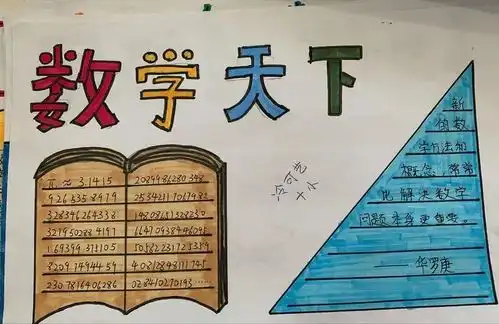 数学天下
π ≈ 3.1415
926535 8979
323846264338
327950288 4197
169399 375105
8209 74944 59
230 7816406286
2089986280348
2534211 7067982
1480865 1328230
664709384 46095
50582231725359
4081284811 1745
02841027 0193 ……
新
的数
学方法和
概念,常常
比解决数学
问题本身更重要。
——华罗庚